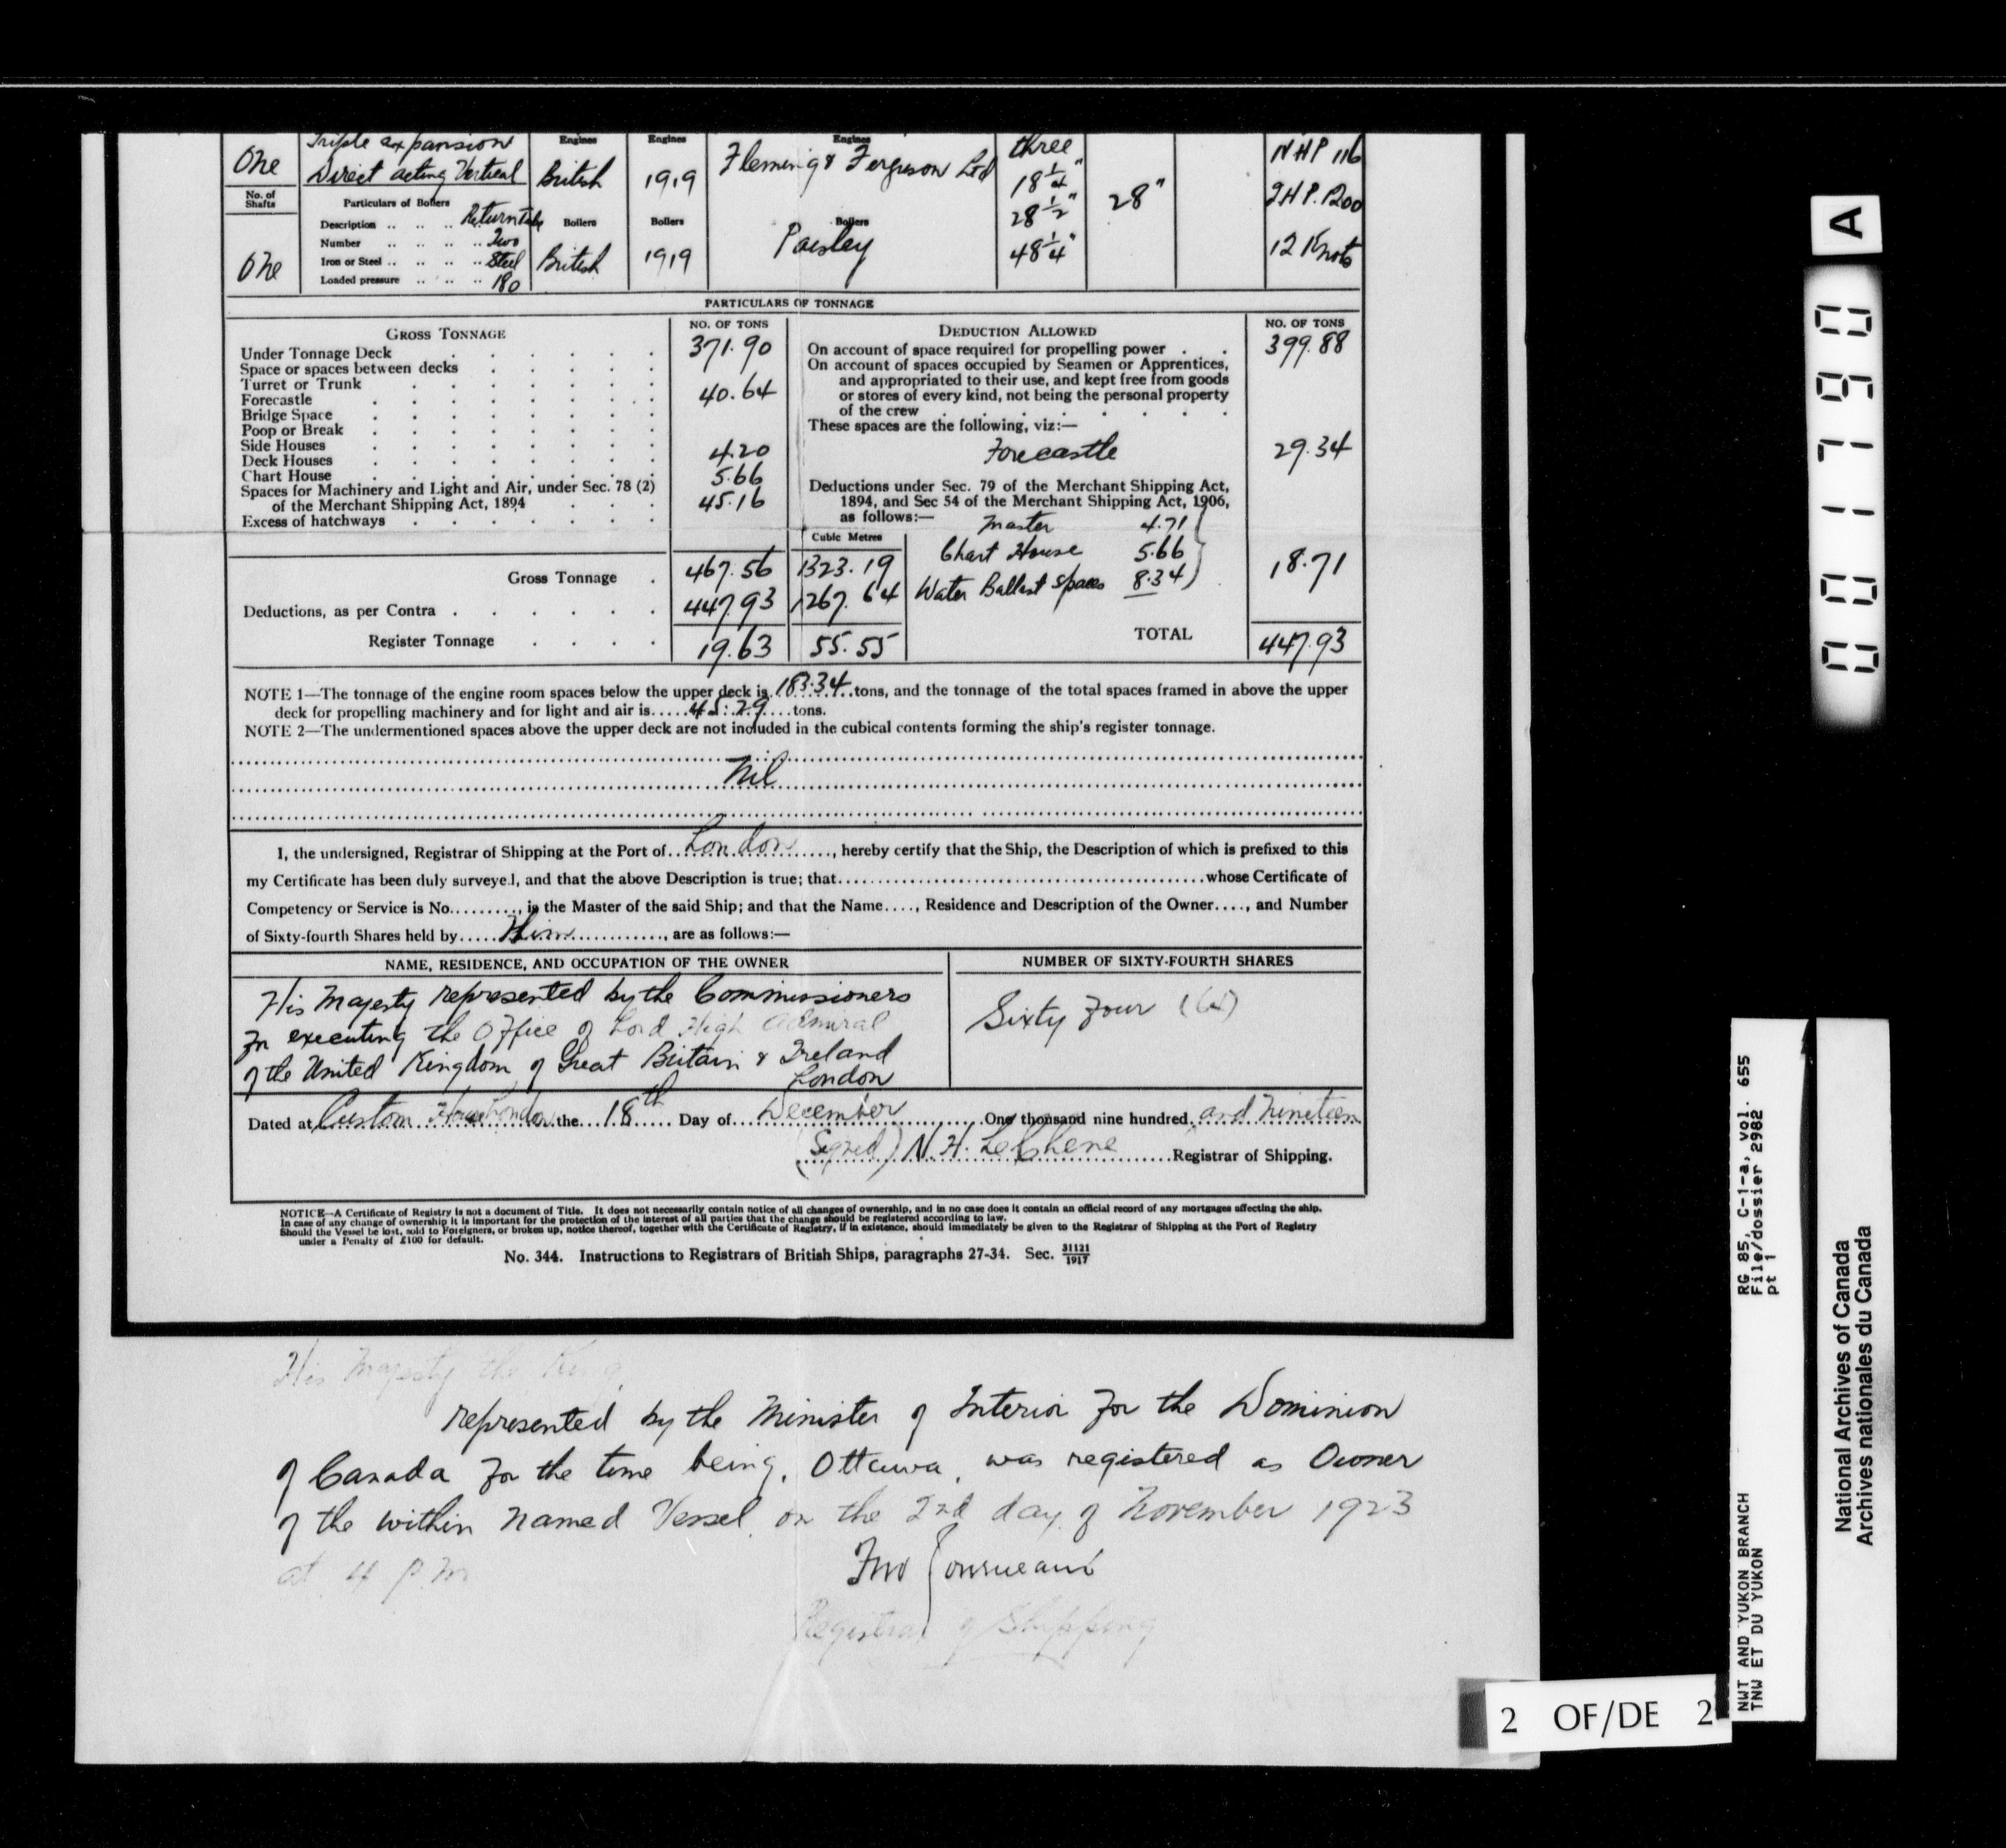 Triple expansion Engines Engines Engines three NHP 116
One Direct acting Vertical British 1919 Fleming & Ferguson Ltd 18 1/4" 28" IHP. 1200
No. of Shafts
Particulars of Boilers 28 1/2"
Description .. .. .. Return tube Boilers Boilers Boilers
Number .. .. .. .. Two Paisley 48 1/4" 12 Knots
One Iron or Steel .. .. .. .. Steel British 1919
Loaded pressure .. .. .. 180
PARTICULARS OF TONNAGE
GROSS TONNAGE NO. OF TONS
Under Tonnage Deck 371.90
Space or spaces between decks
Turret or Trunk
Forecastle 40.64
Bridge Space
Poop or Break
Side Houses
Deck Houses 4.20
Chart House 5.66
Spaces for Machinery and Light and Air, under Sec. 78 (2)
of the Merchant Shipping Act, 1894 45.16
Excess of hatchways
Cubic Metres
Gross Tonnage 467.56 1323.19
Deductions, as per Contra 447.93 1267.64
Register Tonnage 19.63 55.55
DEDUCTION ALLOWED NO. OF TONS
On account of space required for propelling power 399.88
On account of spaces occupied by Seamen or Apprentices,
and appropriated to their use, and kept free from goods
or stores of every kind, not being the personal property
of the crew
These spaces are the following, viz:—
Forecastle 29.34
Deductions under Sec. 79 of the Merchant Shipping Act,
1894, and Sec 54 of the Merchant Shipping Act, 1906,
as follows:— Master 4.71
Chart House 5.66
Water Ballast spaces 8.34 18.71
TOTAL 447.93
NOTE 1—The tonnage of the engine room spaces below the upper deck is 183.34 tons, and the tonnage of the total spaces framed in above the upper
deck for propelling machinery and for light and air is.....45.29....tons.
NOTE 2—The undermentioned spaces above the upper deck are not included in the cubical contents forming the ship's register tonnage.
Nil
I, the undersigned, Registrar of Shipping at the Port of London, hereby certify that the Ship, the Description of which is prefixed to this
my Certificate has been duly surveyed, and that the above Description is true; that.......... whose Certificate of
Competency or Service is No.........., is the Master of the said Ship; and that the Name...., Residence and Description of the Owner...., and Number
of Sixty-fourth Shares held by.....Him............., are as follows:—
NAME, RESIDENCE, AND OCCUPATION OF THE OWNER NUMBER OF SIXTY-FOURTH SHARES
His Majesty represented by the Commissioners
for executing the Office of Lord High Admiral Sixty Four (64)
of the United Kingdom of Great Britain & Ireland
London
Dated at Custom House London the 18th Day of December One thousand nine hundred and Nineteen
(Signed) N. H. LeChene Registrar of Shipping.
NOTICE—A Certificate of Registry is not a document of Title. It does not necessarily contain notice of all changes of ownership, and in no case does it contain an official record of any mortgages affecting the ship.
In case of any change of ownership it is important for the protection of the interest of all parties that the change should be registered according to law.
Should the Vessel be lost, sold to Foreigners, or broken up, notice thereof, together with the Certificate of Registry, if in existence, should immediately be given to the Registrar of Shipping at the Port of Registry
under a Penalty of £100 for default.
No. 344. Instructions to Registrars of British Ships, paragraphs 27-34. Sec. 31121/1917
His Majesty the King
represented by the Minister of Interior for the Dominion
of Canada for the time being, Ottawa, was registered as Owner
of the within named Vessel on the 2nd day of November 1923
at 4 p.m.
Registrar of Shipping
2 OF/DE 2
A
001790
RG 85, C-1-a, vol. 655
File/dossier 2982
pt 1
NWT AND YUKON BRANCH
TNW ET DU YUKON
National Archives of Canada
Archives nationales du Canada